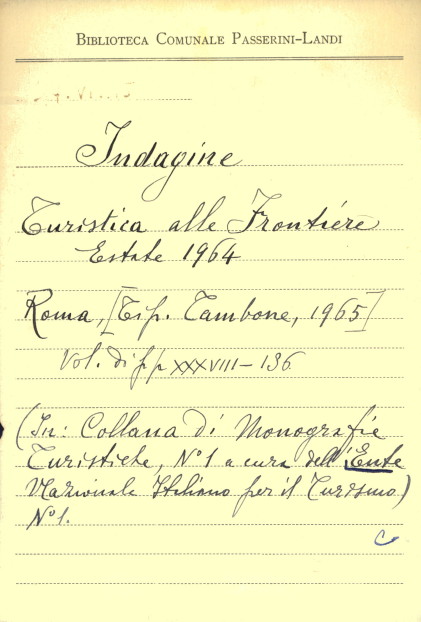 BIBLIOTECA COMUNALE PASSERINI-LANDI
Indagine
Turistica alle Frontiére
Estate 1964
Roma, [Tip. Tambone, 1965]
Vol. di pp XXXVIII-136
(In: Collana di Monografie
Turistiche, N°1 a cura dell'Ente
Nazionale Italiano per il Turismo)
N°1.